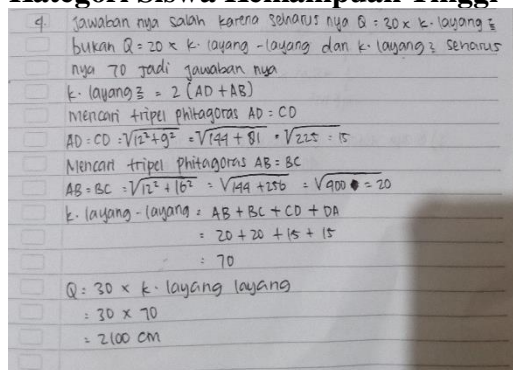 Kategori Siswa Kemampuan Tinggi
4. Jawaban nya salah karena seharus nya Q = 30 x k. layang²
bukan Q = 20 x k. layang-layang dan k. layang² seharus
nya 70 Jadi jawaban nya
k. layang² = 2 (AD + AB)
Mencari tripel phitagoras AD = CD
AD = CD = √12² + 9² = √144 + 81 = √225 = 15
Mencari tripel phitagoras AB = BC
AB = BC = √12² + 16² = √144 + 256 = √400 = 20
k. layang-layang = AB + BC + CD + DA
= 20 + 20 + 15 + 15
= 70
Q = 30 x k. layang layang
= 30 x 70
= 2100 cm